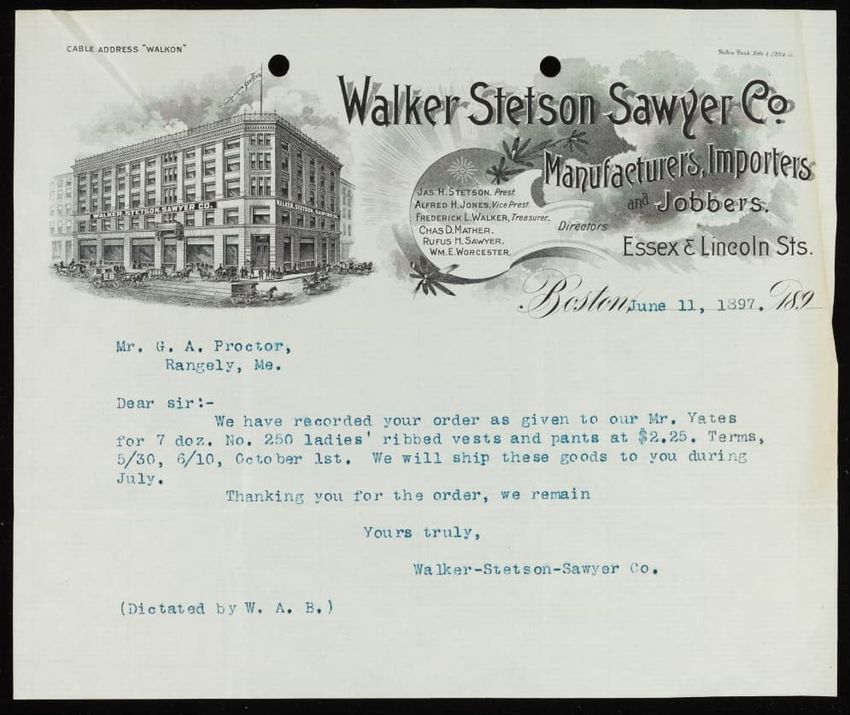 CABLE ADDRESS "WALKON"
Walker Stetson Sawyer Co.
Manufacturers, Importers
and Jobbers.
JAS. H. STETSON, Prest.
ALFRED H. JONES, Vice Prest.
FREDERICK L. WALKER, Treasurer.
CHAS D. MATHER.
RUFUS H. SAWYER.
WM. E. WORCESTER.
Directors
Essex & Lincoln Sts.
WALKER, STETSON, SAWYER CO.
WALKER, STETSON, SAWYER CO.
Boston, June 11, 1897. 189
Mr. G. A. Proctor,
Rangely, Me.
Dear sir:-
We have recorded your order as given to our Mr. Yates
for 7 doz. No. 250 ladies' ribbed vests and pants at $2.25. Terms,
5/30, 6/10, October 1st. We will ship these goods to you during
July.
Thanking you for the order, we remain
Yours truly,
Walker-Stetson-Sawyer Co.
(Dictated by W. A. B.)